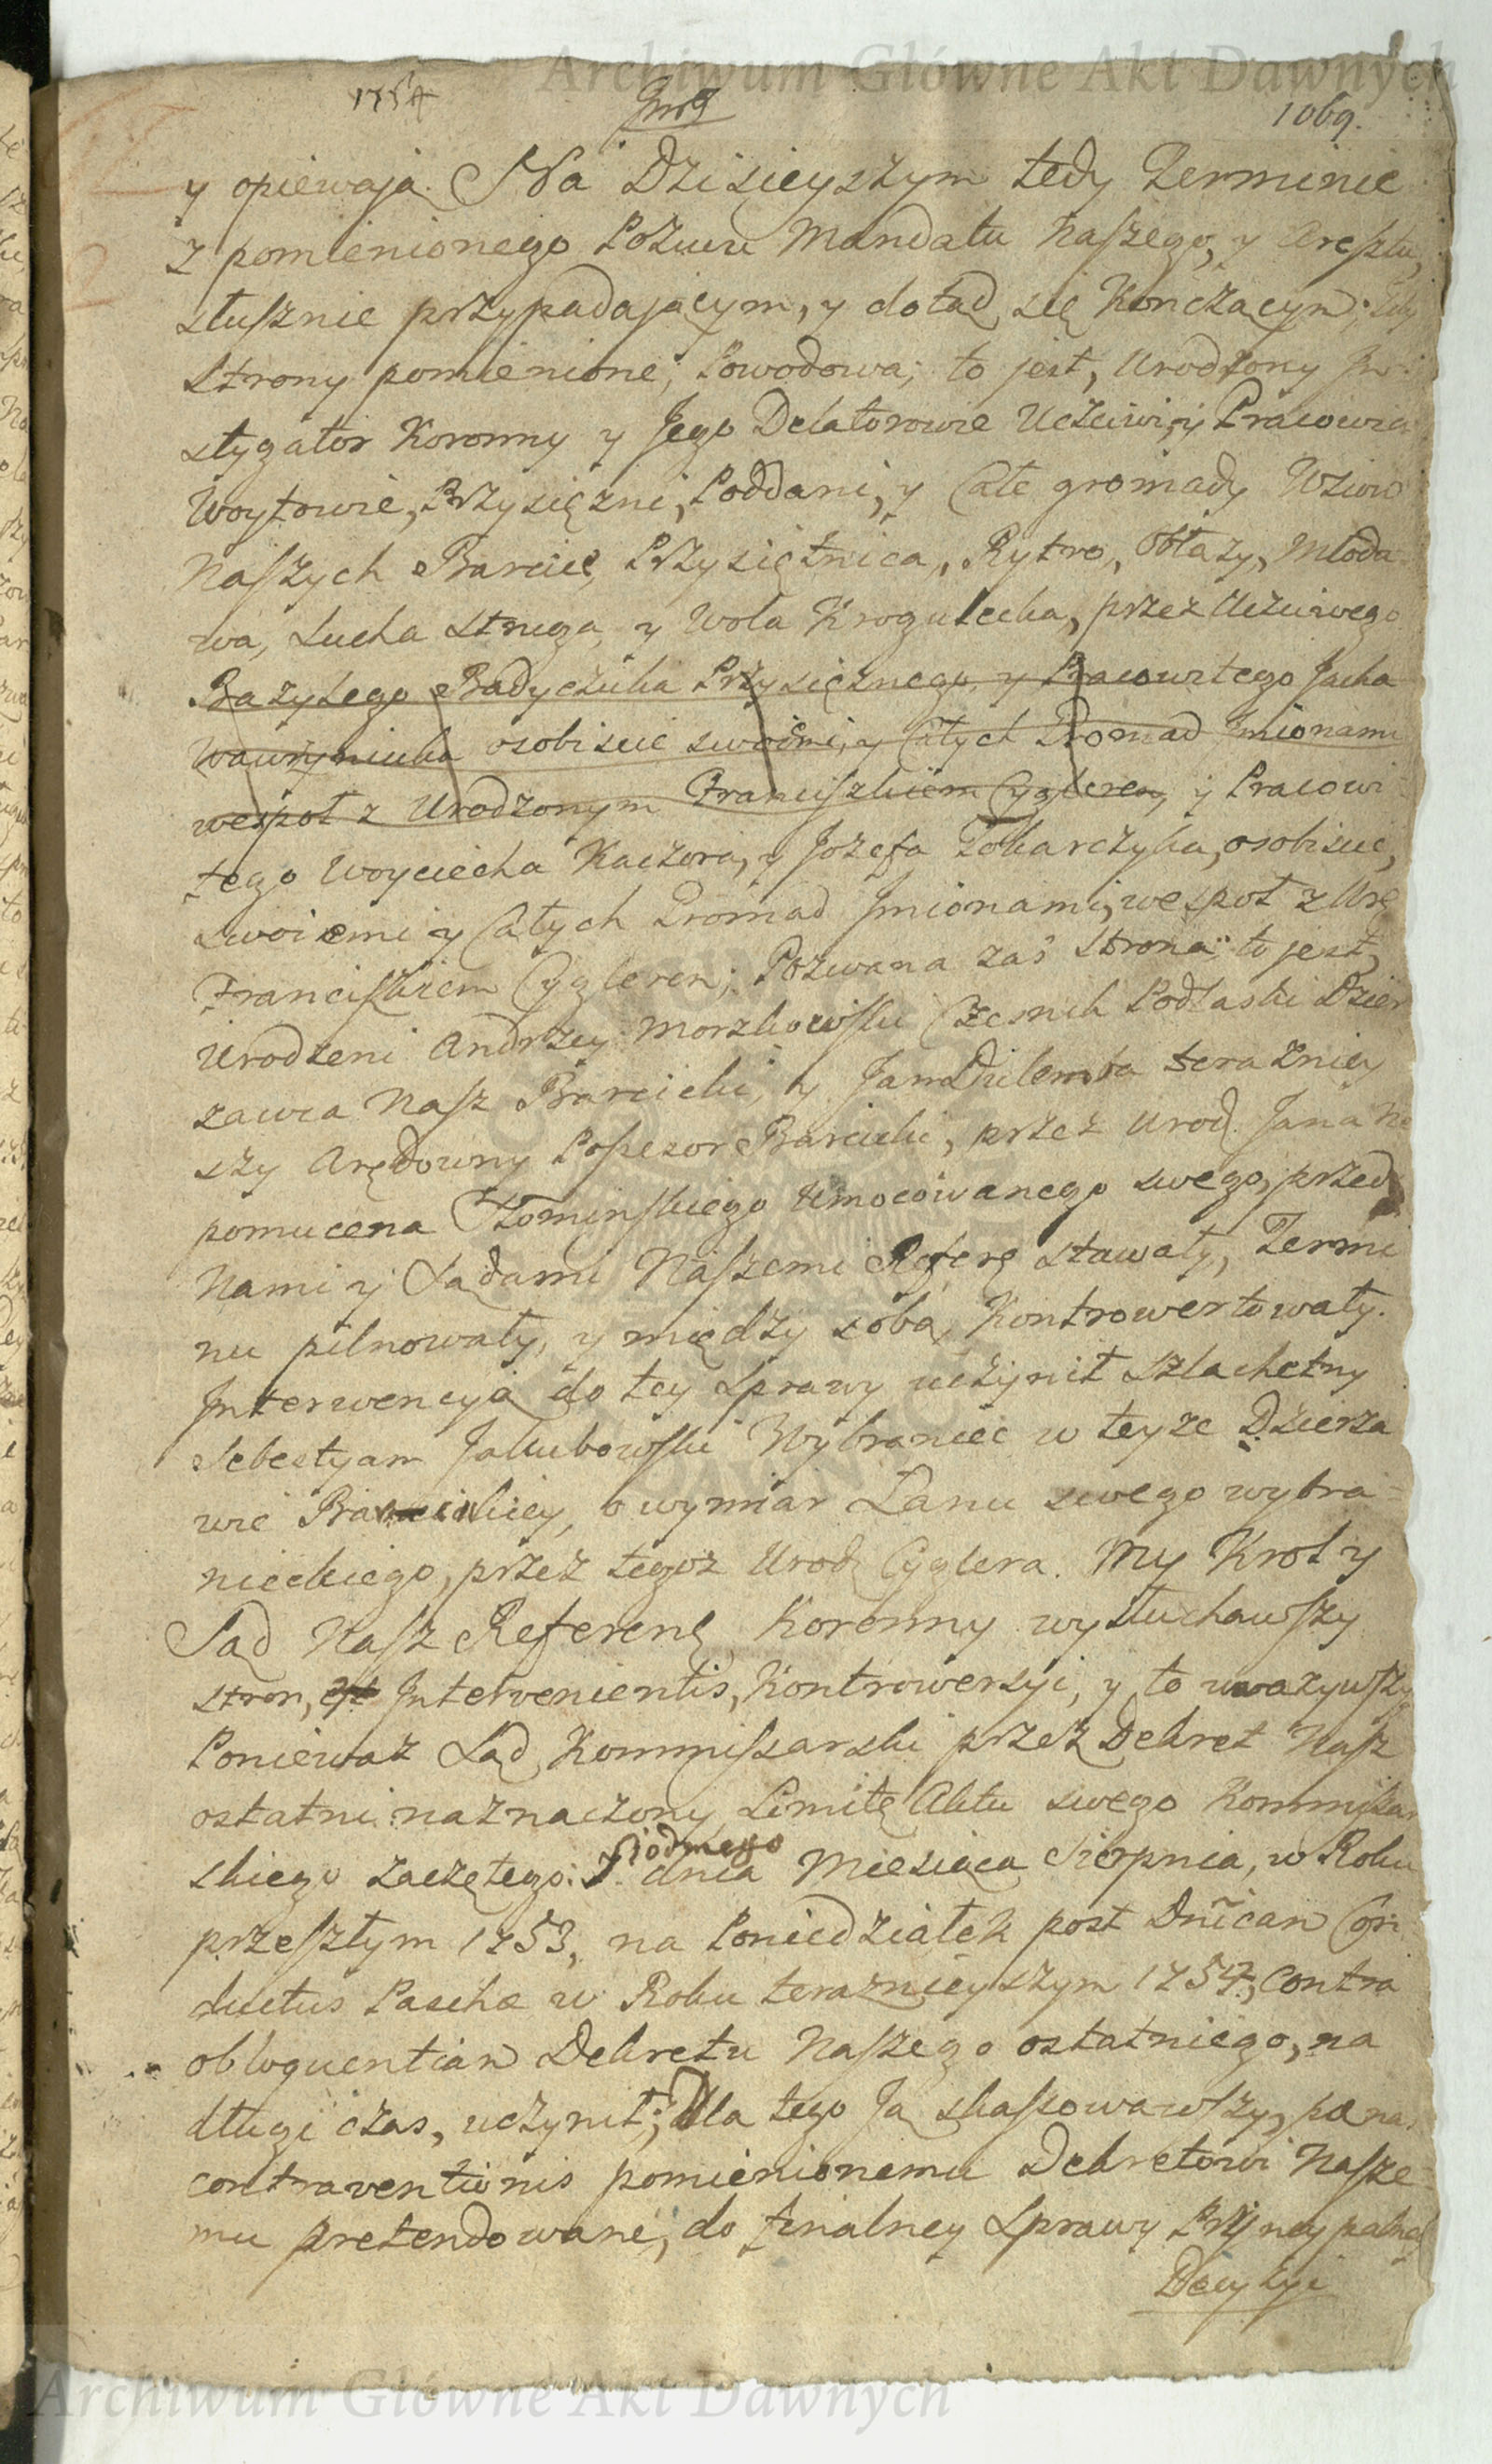 Archiwum Główne Akt Dawnych
1754
1069.
y opiewaja. Na Dzisieyszym tedy Terminie
z pomienionego Pozwu Mandatu Naszego, y Aresztu,
słusznie przypadaiącym, y dotąd się Kończącym; gdy
Strony pomienione; Powodowa; to jest, Urodzony Jn-
stygator Koronny y Jego Delatorowie Uczciwi, y Pracowici
Woytowie, Przysięzni, Poddani, y Całe gromady Wsiow
Naszych Barcice, Przysiętnica, Rytro, Obłazy, Młodo
wa, Sucha Struga, y Wola Krogulecka, przez Uczciwego
Bazylego Badyczuka Przysięznego, y Pracowitego Jacka
Wawrzyniuka osobiscie swoiemi, y Całych Gromad Jmionami
wespoł z Urodzonym Franciszkiem Cyglerem, y Pracowi-
tego Woyciecha Kaczora, y Jozefa Tokarczyka, osobiscie,
swoiemi y Całych Gromad Jmionami, wespoł z Uro
Franciszkiem Cyglerem; Pozwana zaś Strona; to jest,
Urodzeni Andrzey Morzkowski Czesnik Podlaski Dzier
zawca Nasz Barcicki, y Jan Dulemba terazniey
szy Arędowny Possesor Barcicki, przez Urod. Jana Ne
pomucena Słominskiego Umocowanego swego, przed
Nami y Sądami Naszemi Referę stawały, Termi
nu pilnowały, y między sobą Kontrowertowały.
Jnterwencyą do tey Sprawy uczynił Szlachetny
Sebestyan Jakubowski Wybraniec w teyze Dzierza
wie Barcickiey, o wymiar Łanu swego wybra-
nieckiego, przez tegoz Urod Cyglera. My Krol y
Sąd Nasz Referenę Koronny wysłuchawszy
Stron, et Jntervenientis, Kontrowersyi, y to uwazywszy
Poniewaz Sąd Kommissarski przez Dekret Nasz
ostatni naznaczony Limitę Aktu swego Kommissar
skiego zaczętego: Siodmego
dnia Miesiąca Sierpnia, w Roku
przeszłym 1753, na Poniedziałek post Dnican Con
ductus Paschæ w Roku teraznieyszym 1754, contra
obloquentian Dekretu Naszego ostatniego, na
długi czas, uczynił; Dla tego Ją skassowawszy, pœnas
contraventionis pomienionemu Dekretowi Nasze-
mu pretendowane, do finalney Sprawy Pryncypalney
Decyzyi
Archiwum Główne Akt Dawnych